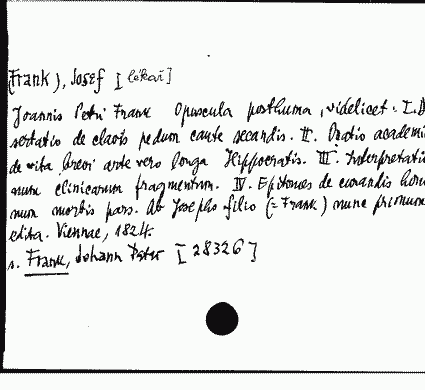 (Frank), Josef [lékař]
Joannis Petri Frank Opuscula posthuma, videlicet. I. D
sertatio de clavis pedum caute secandis. II. Oratio academi
de vita brevi arte vero longa Hippocratis. III. Interpretati
num clinicarum fragmentum. IV. Epitomes de curandis homi
num morbis pars. Ab Josepho filio (=Frank) nunc primum
edita. Viennae, 1824.
s. Frank, Johann Peter [28326]